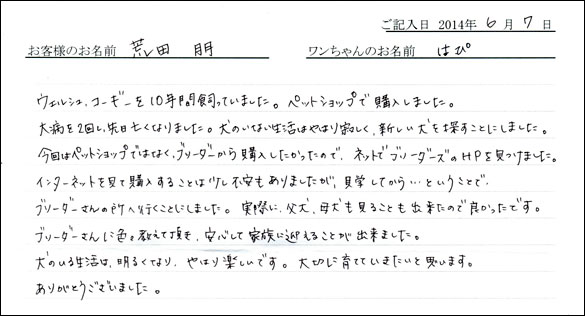 ご記入日 2014年 6月 7日
お客様のお名前 荒田 朋 ワンちゃんのお名前 はぴ
ウェルシュ.コーギーを10年間飼っていました。ペットショップで購入しました。
大病を2回し、先日亡くなりました。犬のいない生活はやはり寂しく、新しい犬を探すことにしました。
今回はペットショップではなく、ブリーダーから購入したかったので、ネットでブリーダーズのHPを見つけました。
インターネットを見て購入することは少し不安もありましたが、見学してから…ということで、
ブリーダーさんの所へ行くことにしました。実際に、父犬、母犬も見ることも出来たので良かったです。
ブリーダーさんに色々教えて頂き、安心して家族に迎えることが出来ました。
犬のいる生活は、明るくなり、やはり楽しいです。大切に育てていきたいと思います。
ありがとうございました。